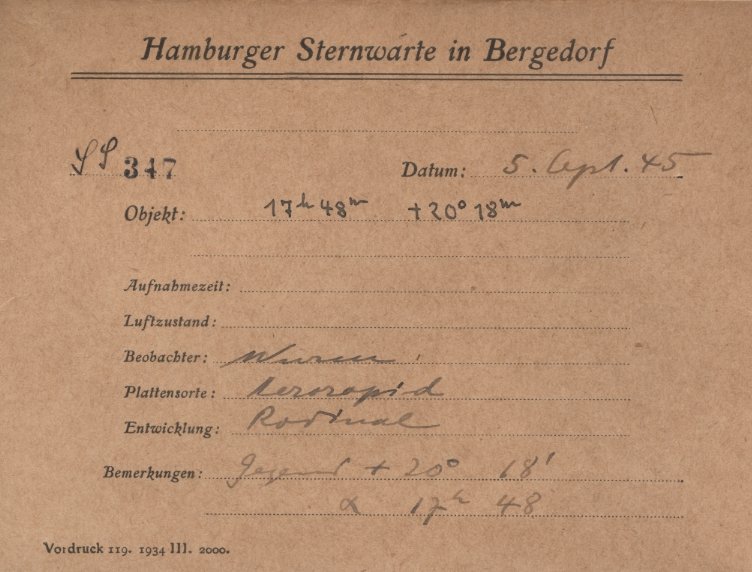 Hamburger Sternwarte in Bergedorf
SS 347 Datum: 5. Sept. 45
Objekt: 17h 48m +20° 18m
Aufnahmezeit:
Luftzustand:
Beobachter: Wurm
Plattensorte: Aerorapid
Entwicklung: Rodinal
Bemerkungen: Gegend + 20° 18'
α 17h 48
Vordruck 119. 1934 III. 2000.